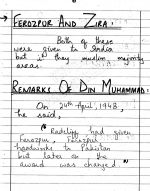 FEROZPUR AND ZIRA:
Both of these
were given to India
but if they muslim majority
areas.
REMARKS OF DIN MUHAMMAD:
On 24th April, 1948,
he said,
"Radcliff had given
Ferozpur, Ferozpur
headworks to Pakistan
but later on the
award was changed."